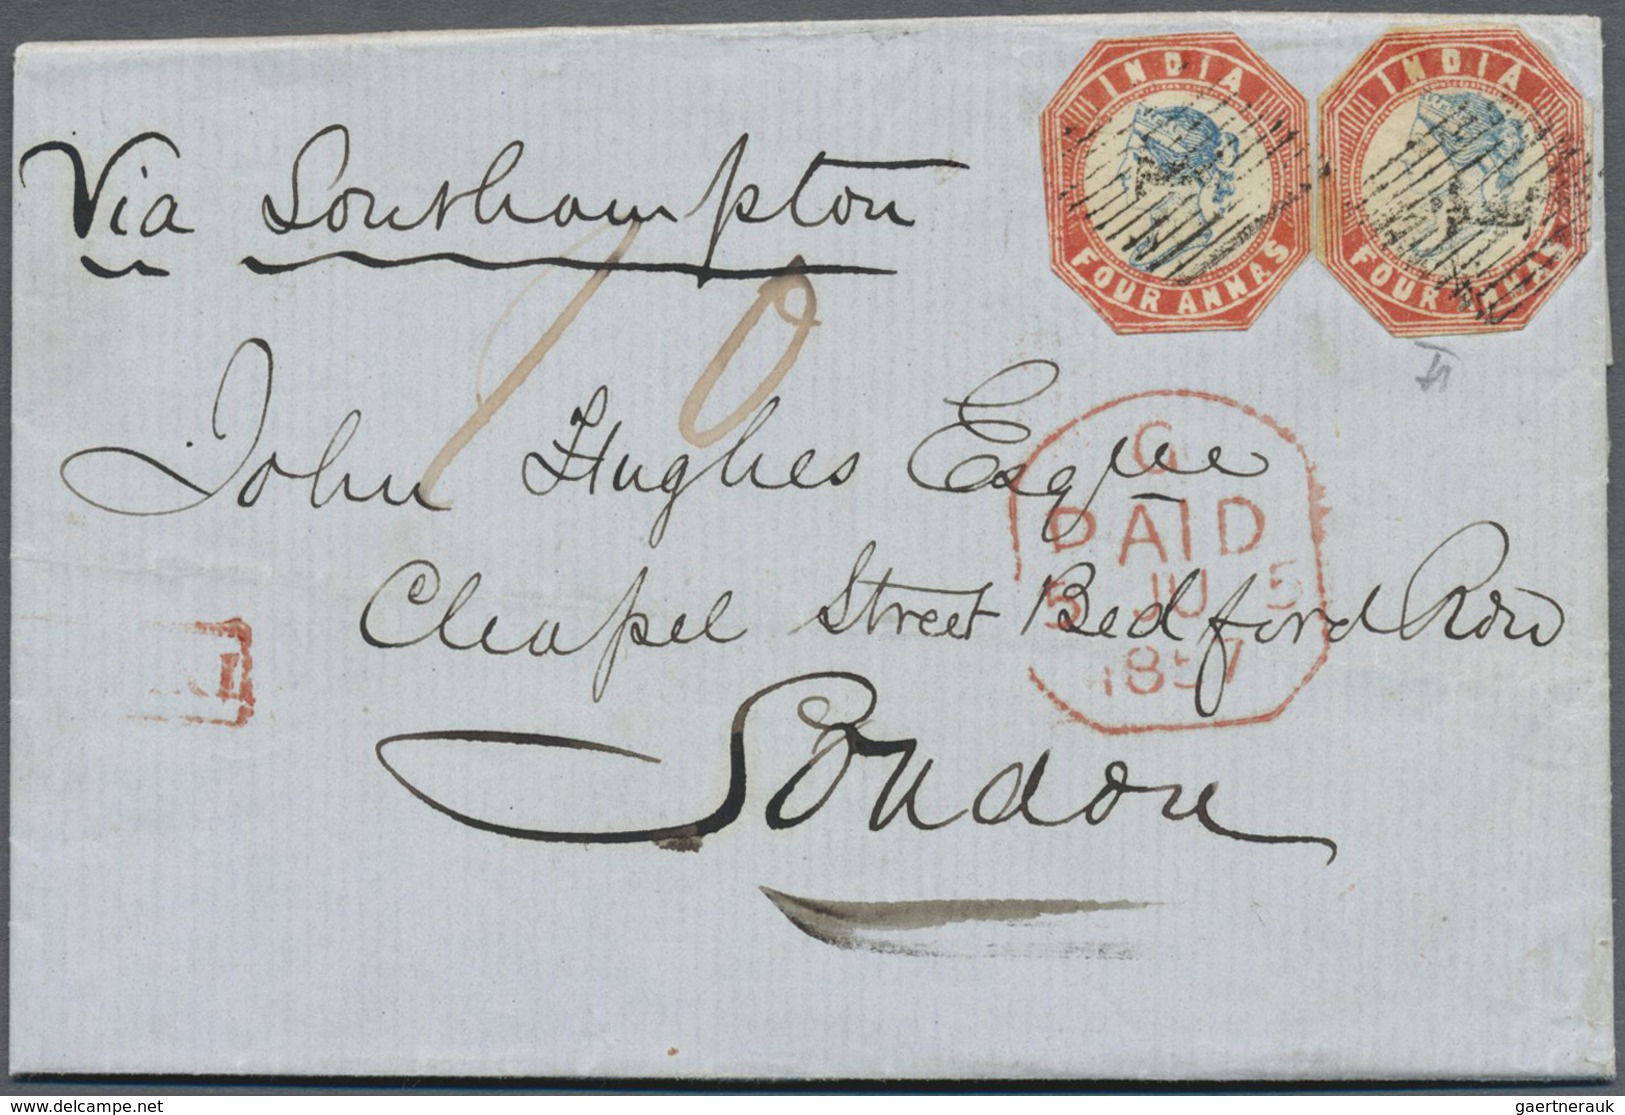 INDIA
FOUR ANNAS
INDIA
FOUR ANNAS
Via Southampton
10
John Hughes Esqre
Chapel Street Bedford Row
London
G
PAID
5 JU 5
1857
delcampe.net
gaertnerauk